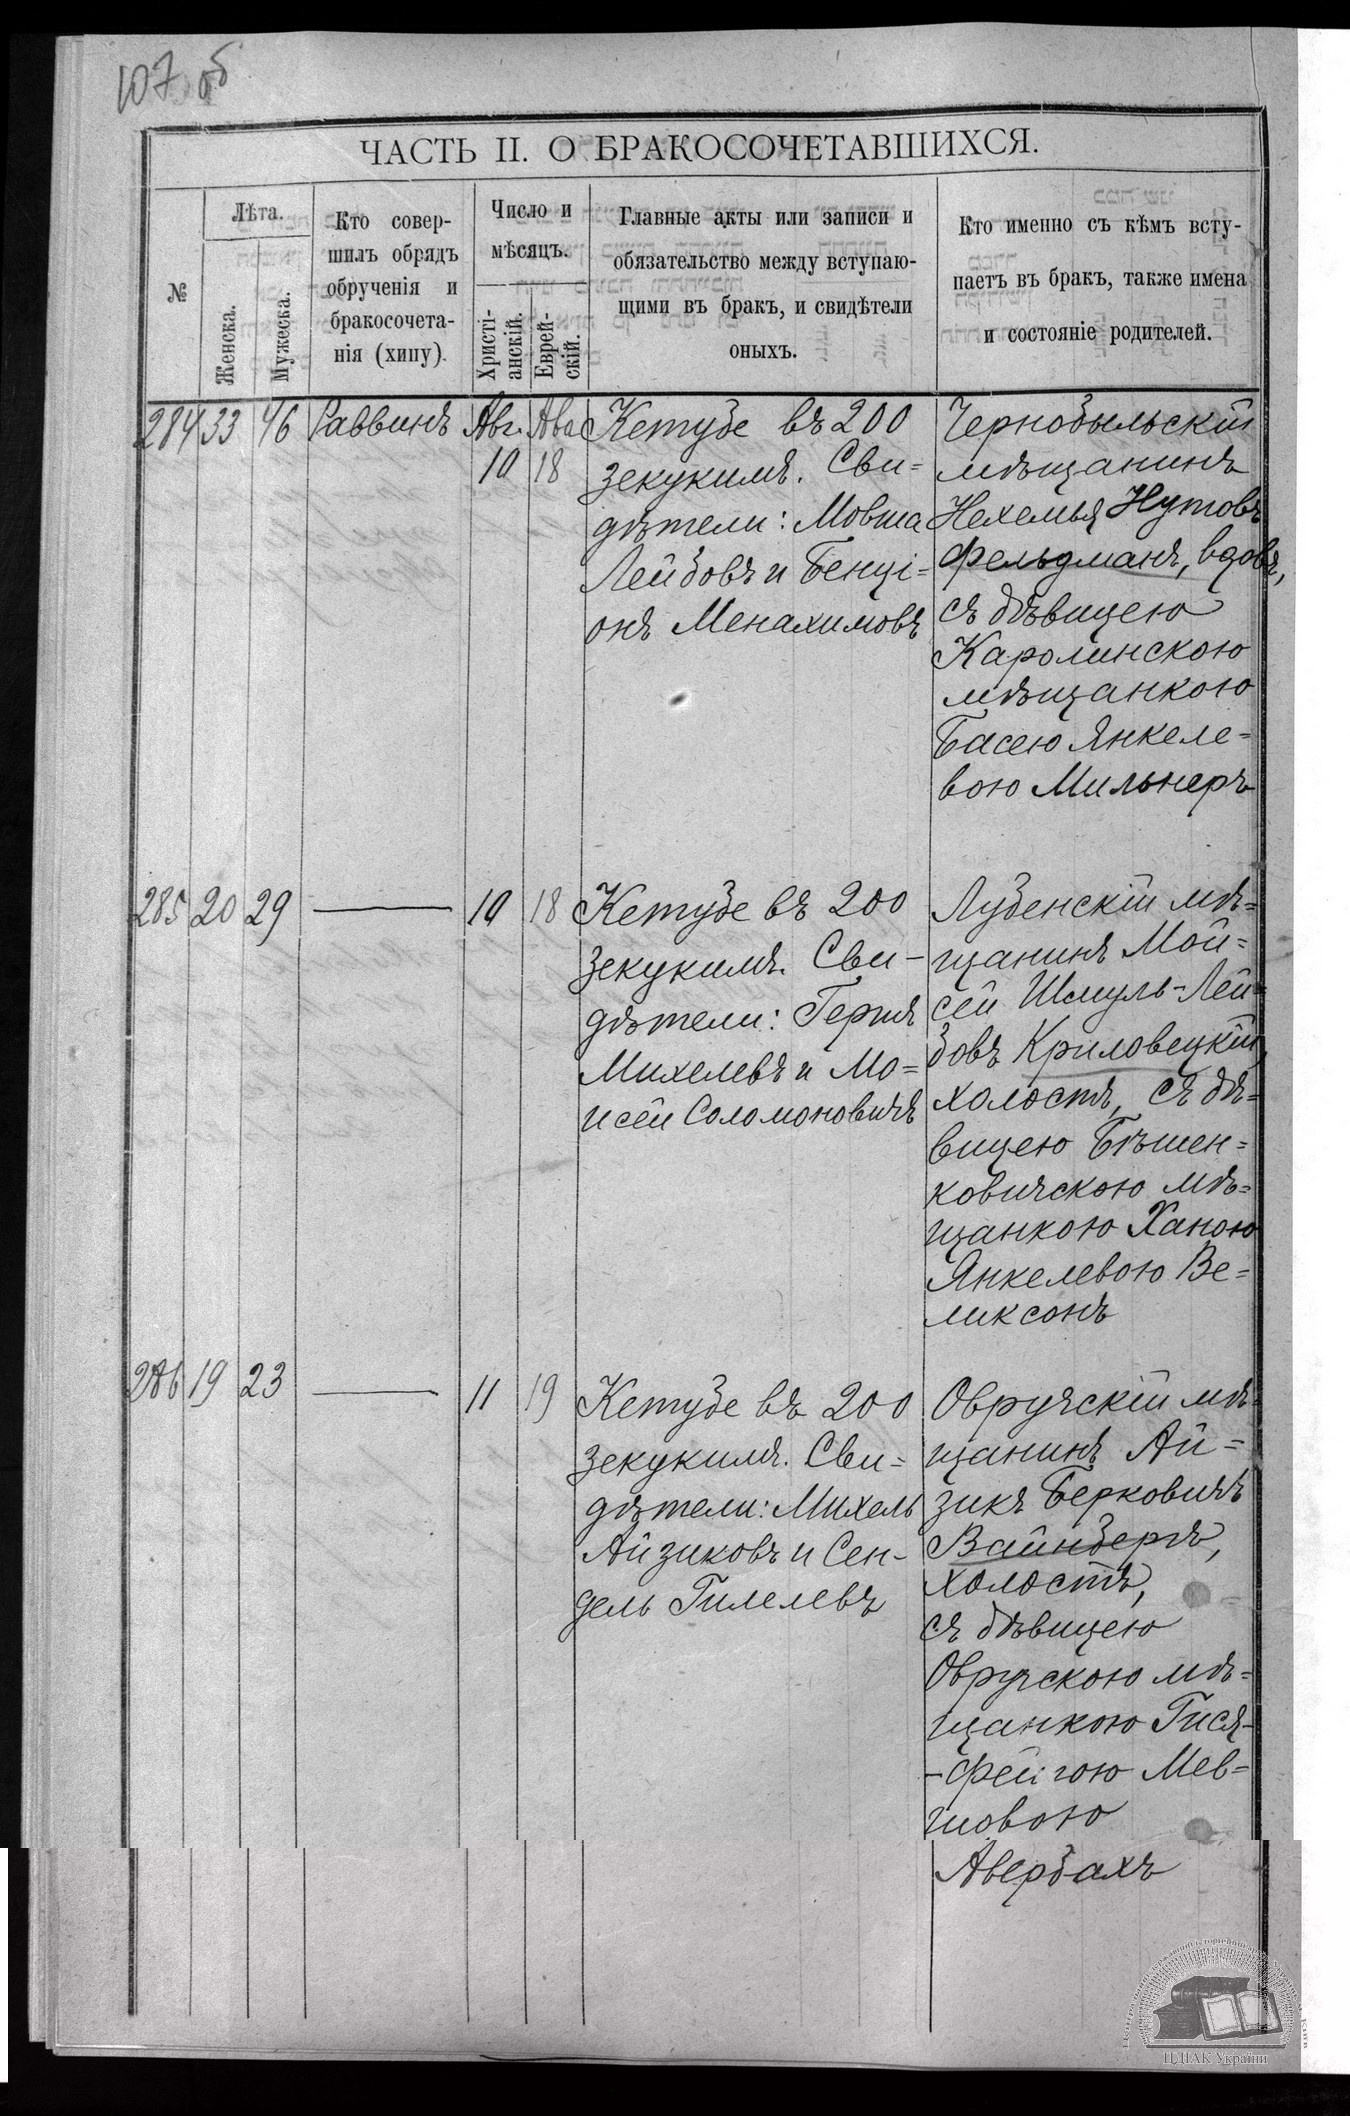 107 об
ЧАСТЬ II. О БРАКОСОЧЕТАВШИХСЯ.
№
Лѣта.
Женска.
Мужеска.
Кто совер-
шилъ обрядъ
обрученія и
бракосочета-
нія (хипу).
Число и
мѣсяцъ.
Христі-
анскій.
Еврей-
скій.
Главные акты или записи и
обязательство между вступаю-
щими въ бракъ, и свидѣтели
оныхъ.
Кто именно съ кѣмъ всту-
паетъ въ бракъ, также имена
и состояніе родителей.
284 33 46 Раввинъ Авг. Ава
10 18
Кетубе въ 200
зекукимъ. Сви=
дѣтели: Мовша
Лейбовъ и Бенці=
онъ Менахимовъ
Чернобыльскій
мѣщанинъ
Нехемья Нутовъ
Фельдманъ, вдовъ,
съ дѣвицею
Каролинскою
мѣщанкою
Басею Янкеле=
вою Мильнеръ
285 20 29 — 10 18
Кетубе въ 200
зекукимъ. Сви-
дѣтели: Гершъ
Михелевъ и Мо=
исей Соломоновичъ
Лубенскій мѣ=
щанинъ Мой=
сей Шмуль-Лей=
бовъ Криловецкій,
холостъ, съ дѣ=
вицею Бѣшен=
ковичскою мѣ=
щанкою Ханою
Янкелевою Ве=
ликсонъ
286 19 23 — 11 19
Кетубе въ 200
зекукимъ. Сви=
дѣтели: Михель
Айзиковъ и Сен-
дель Гилелевъ
Овручскій мѣ=
щанинъ Ай=
зикъ Берковичъ
Вайнберъ,
холостъ,
съ дѣвицею
Овручскою мѣ=
щанкою Гися-
-Фейгою Мев=
шовою
Авербахъ
ЦДІАК України